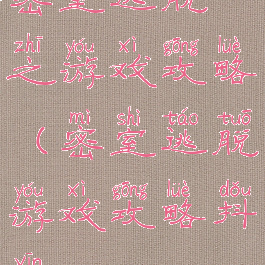 密室逃脱
zhī yóu xì gōng lüè
之游戏攻略
mì shì táo tuō
(密室逃脱
yóu xì gōng lüè dǒu
游戏攻略抖
yīn